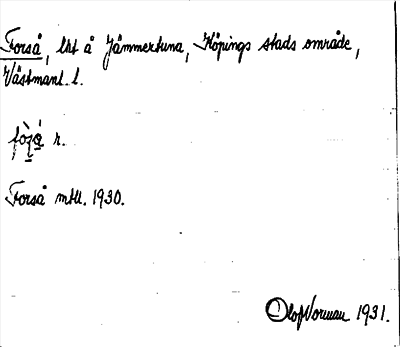 Forså, lht å Jämmertuna, Köpings stads område,
Västmanl. l.
r.
Forså mtl. 1930.
Olof Norman 1931.